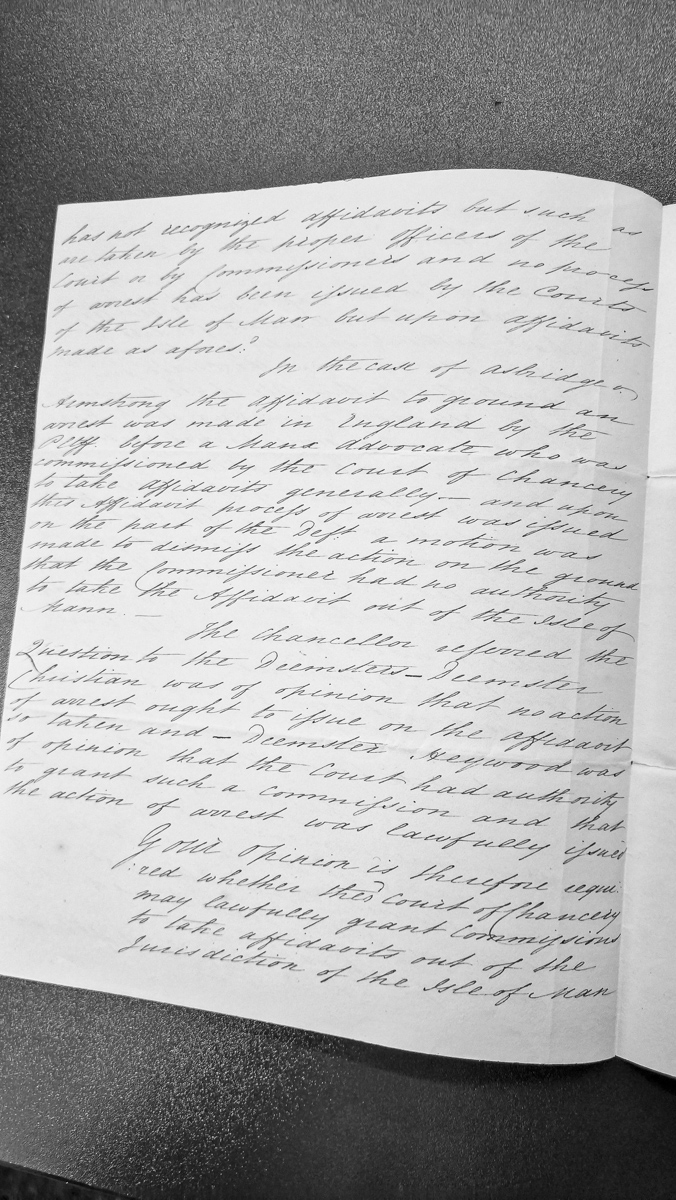 has not recognized affidavits but such as
are taken by the proper officers of the
Court or by Commissioners and no process
of arrest has been issued by the Courts
of the Isle of Man but upon affidavits
made as afores.d
In the case of asbridge v.
Armstrong the affidavit to ground an
arrest was made in England by the
Pltff before a Manx Advocate who was
commissioned by the Court of Chancery
to take affidavits generally — and upon
this Affidavit process of arrest was issued
on the part of the Deft a motion was
made to dismiss the action on the ground
that the Commissioner had no authority
to take the Affidavit out of the Isle of
Mann. —
The Chancellor referred the
Question to the Deemsters — Deemster
Christian was of opinion that no action
of arrest ought to issue on the affidavit
so taken and — Deemster Heywood was
of opinion that the Court had authority
to grant such a commission and that
the action of arrest was lawfully issued
Your opinion is therefore requi:
:red whether the Court of Chancery
may lawfully grant Commissions
to take affidavits out of the
Jurisdiction of the Isle of Man